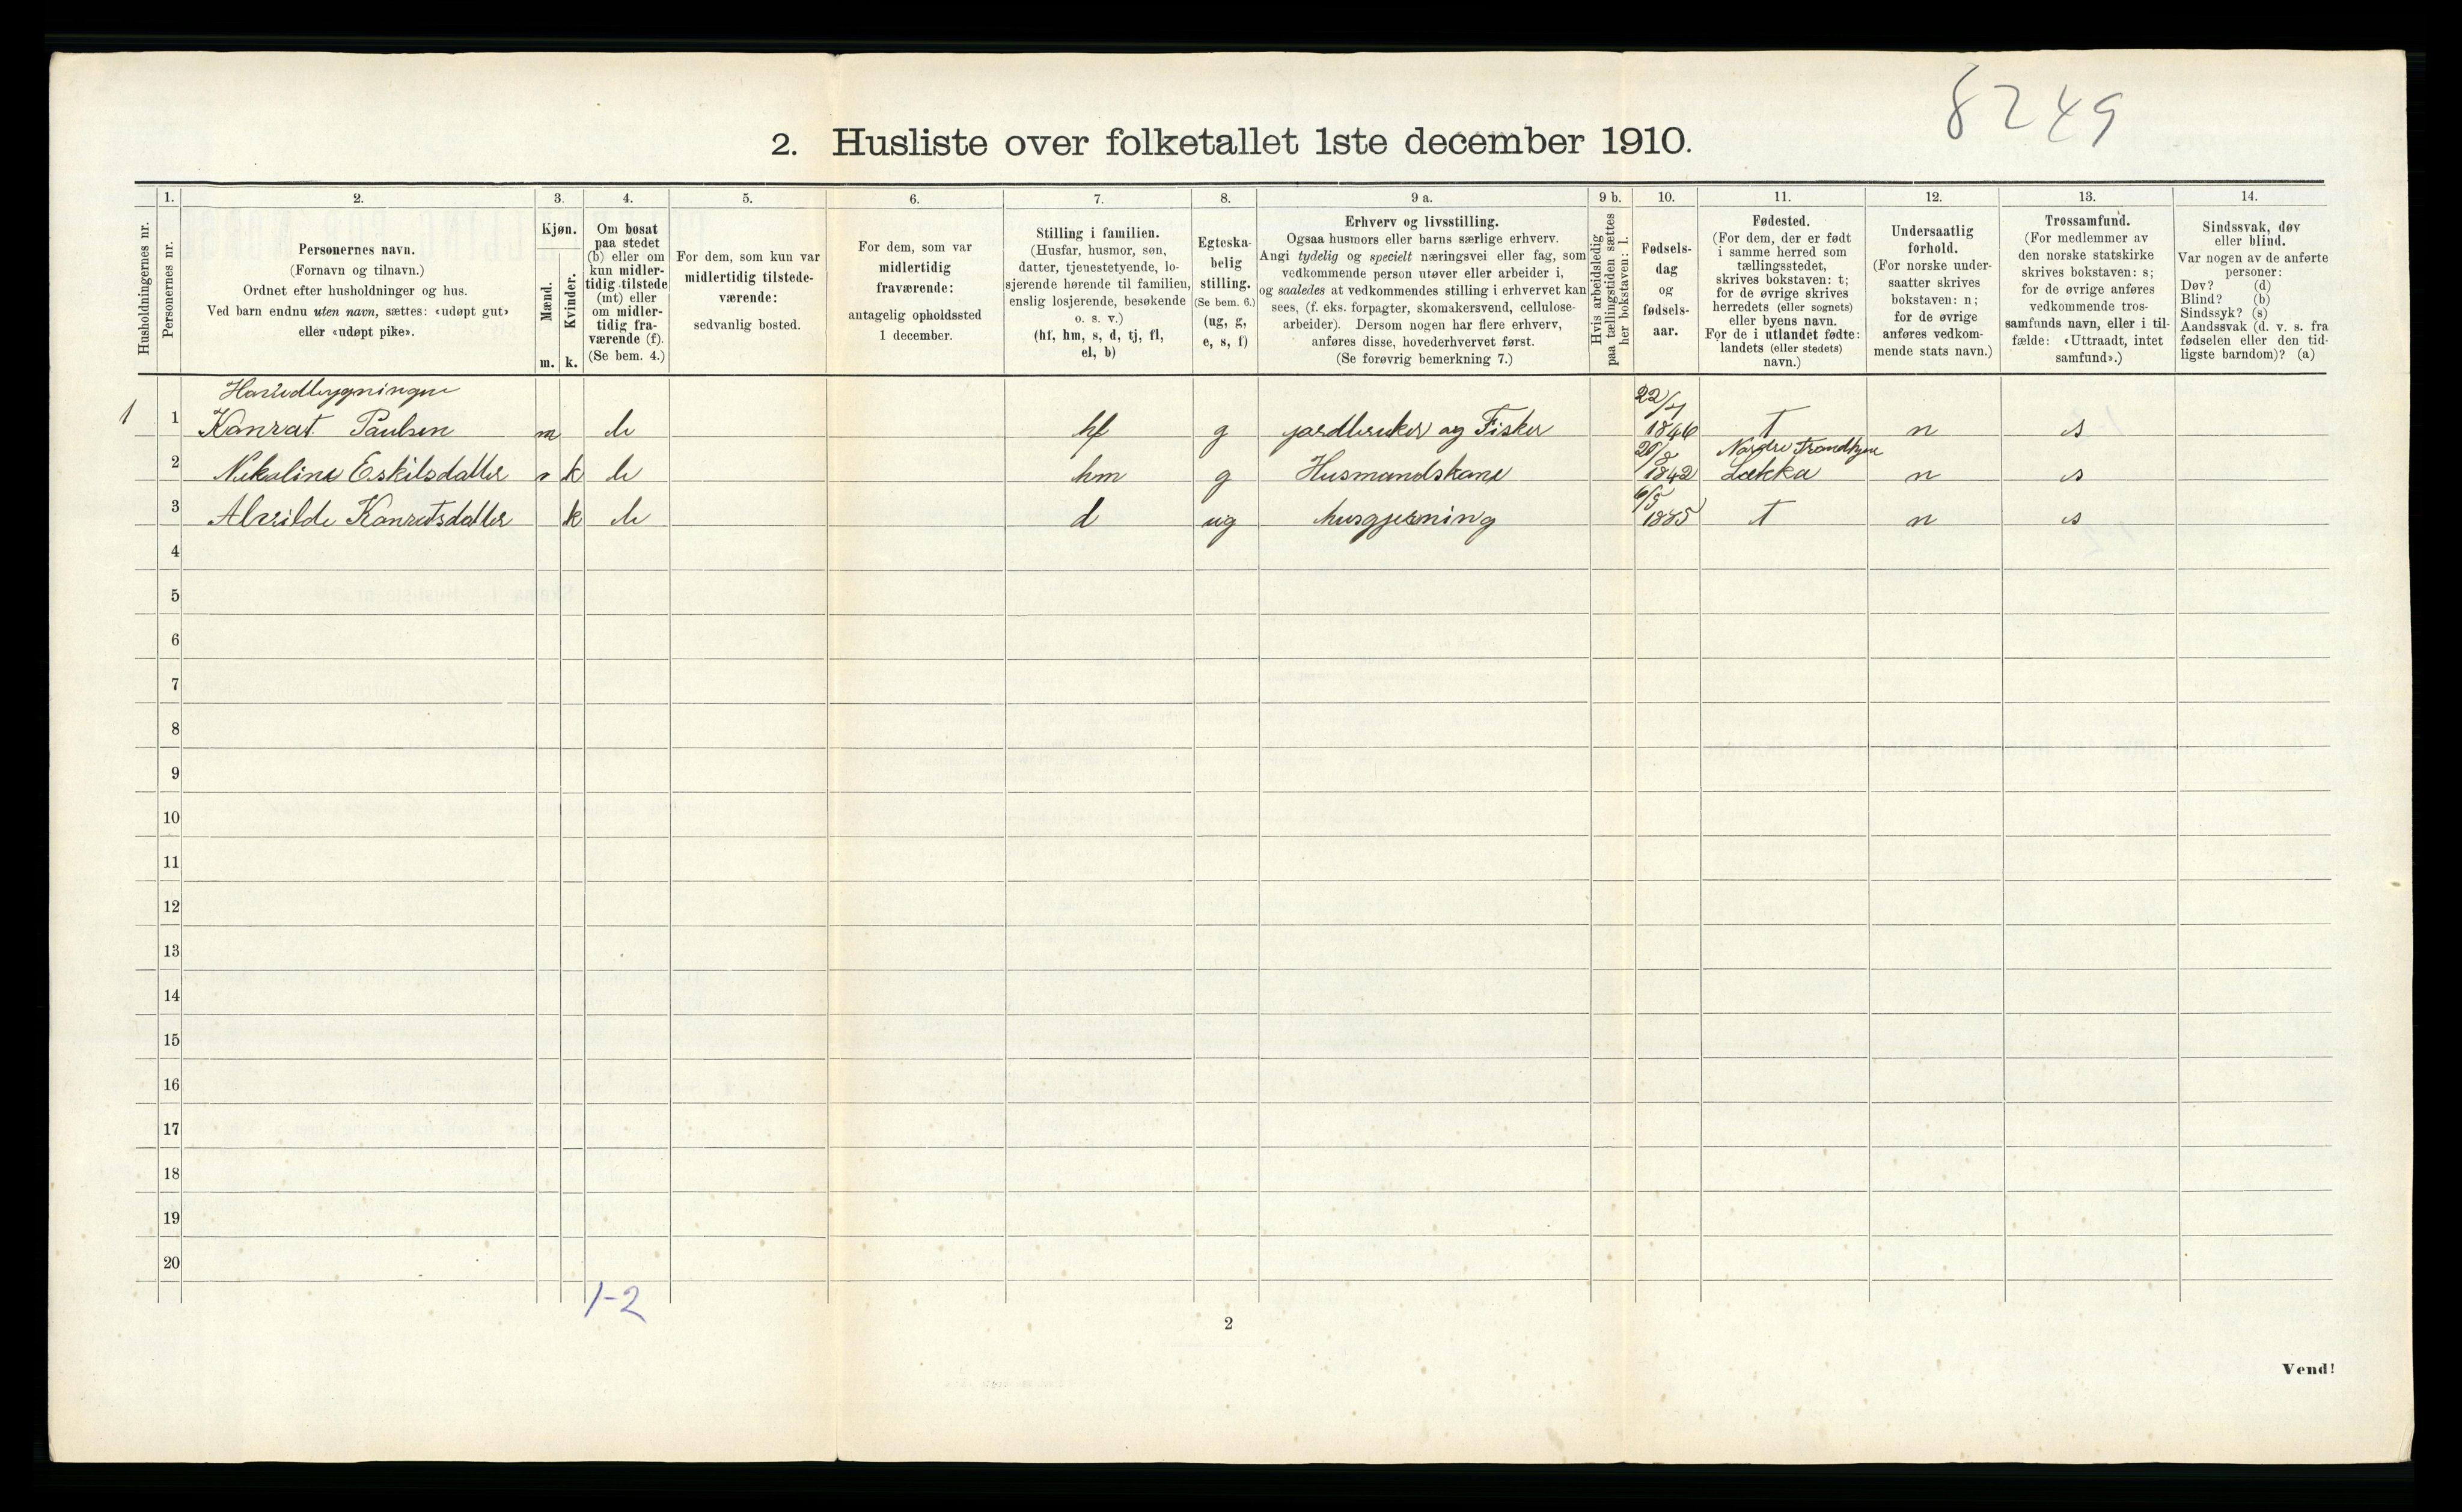 8249
2. Husliste over folketallet 1ste december 1910.
Husholdningernes nr.
1.
Personernes nr.
2.
Personernes navn.
(Fornavn og tilnavn.)
Ordnet efter husholdninger og hus.
Ved barn endnu uten navn, sættes: «udøpt gut»
eller «udøpt pike».
3.
Kjøn.
Mænd.
Kvinder.
m. k.
4.
Om bosat
paa stedet
(b) eller om
kun midler-
tidig tilstede
(mt) eller
om midler-
tidig fra-
værende (f).
(Se bem. 4.)
5.
For dem, som kun var
midlertidig tilstede-
værende:
sedvanlig bosted.
6.
For dem, som var
midlertidig
fraværende:
antagelig opholdssted
1 december.
7.
Stilling i familien.
(Husfar, husmor, søn,
datter, tjenestetyende, lo-
sjerende hørende til familien,
enslig losjerende, besøkende
o. s. v.)
(hf, hm, s, d, tj, fl,
el, b)
8.
Egteska-
belig
stilling.
(Se bem. 6.)
(ug, g,
e, s, f)
9 a.
Erhverv og livsstilling.
Ogsaa husmors eller barns særlige erhverv.
Angi tydelig og specielt næringsvei eller fag, som
vedkommende person utøver eller arbeider i,
og saaledes at vedkommendes stilling i erhvervet kan
sees, (f. eks. forpagter, skomakersvend, cellulose-
arbeider). Dersom nogen har flere erhverv,
anføres disse, hovederhvervet først.
(Se forøvrig bemerkning 7.)
9 b.
Hvis arbeidsledig
paa tællingstiden sættes
her bokstaven: l.
10.
Fødsels-
dag
og
fødsels-
aar.
11.
Fødested.
(For dem, der er født
i samme herred som
tællingsstedet,
skrives bokstaven: t;
for de øvrige skrives
herredets (eller sognets)
eller byens navn.
For de i utlandet fødte:
landets (eller stedets)
navn.)
12.
Undersaatlig
forhold.
(For norske under-
saatter skrives
bokstaven: n;
for de øvrige
anføres vedkom-
mende stats navn.)
13.
Trossamfund.
(For medlemmer av
den norske statskirke
skrives bokstaven: s;
for de øvrige anføres
vedkommende tros-
samfunds navn, eller i til-
fælde: «Uttraadt, intet
samfund».)
14.
Sindssvak, døv
eller blind.
Var nogen av de anførte
personer:
Døv? (d)
Blind? (b)
Sindssyk? (s)
Aandssvak (d. v. s. fra
fødselen eller den tid-
ligste barndom)? (a)
22/4
1 1 Kanrat Paulsen m b hf g jordbruker og Fisker 1846 t n s
Nordre Trondhjem
2 Nikoline Eskilsdatter k b hm g Husmandskone 1842 Lekka n s
3 Alvilde Kanratsdatter k b d ug husgjerning 6/5 1885 t n s
4
5
6
7
8
9
10
11
12
13
14
15
16
17
18
19
20
1-2
2
Vend!